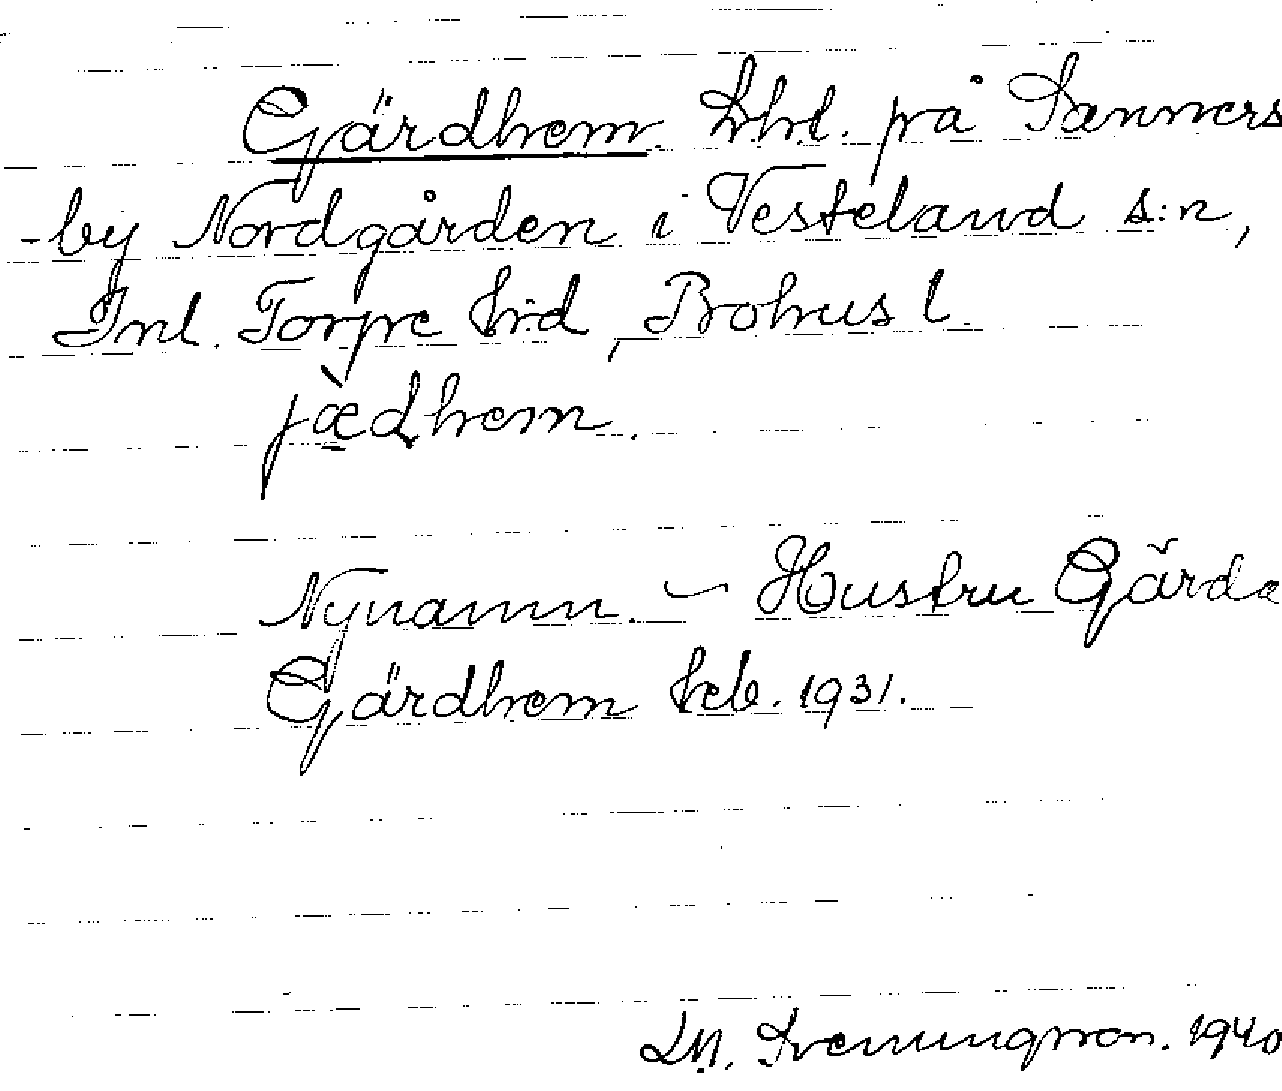 Gärdhem. Lht. på Sanners
-by Nordgården i Vesteland s:n,
Inl. Torpe hd, Bohusl.
jædhem.
Nynamn. – Hustru Gärda
Gärdhem feb. 1931.
1940